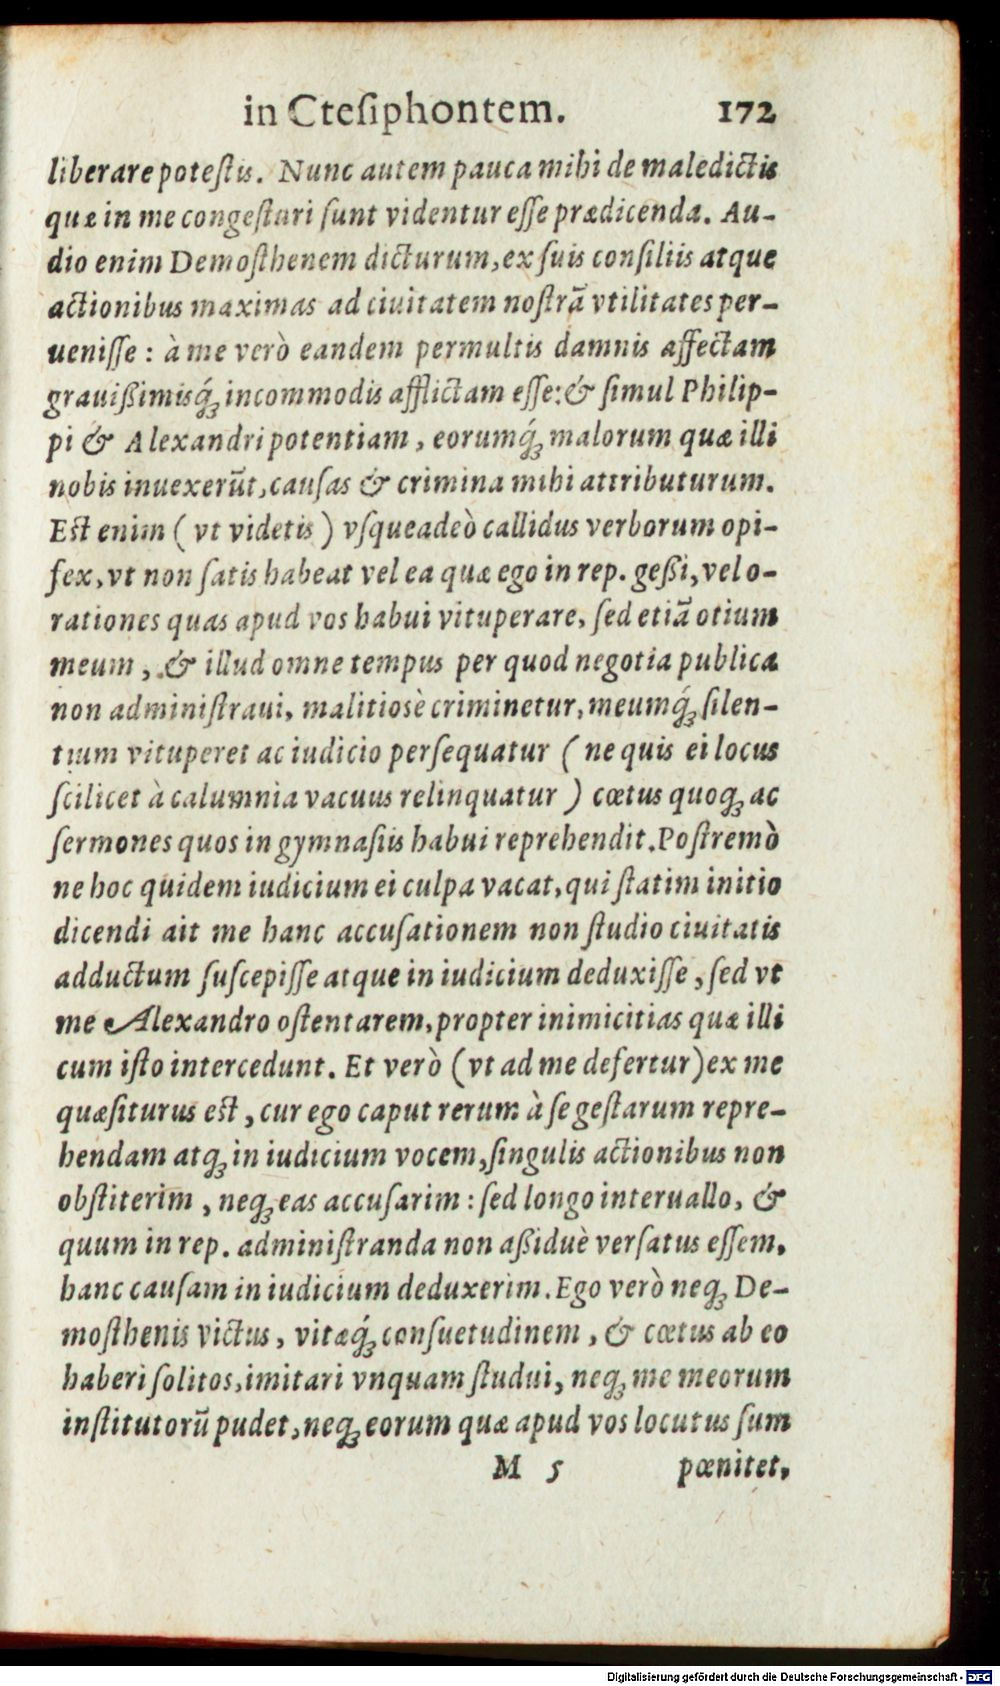 in Cteſiphontem. 172
liberare poteſtis. Nunc autem pauca mihi de maledictis
quæ in me congeſturi ſunt videntur eſſe prædicenda. Au-
dio enim Demoſthenem dicturum, ex ſuis conſiliis atque
actionibus maximas ad ciuitatem noſtrã vtilitates per-
ueniſſe : à me verò eandem permultis damnis affectam
grauißimisq́; incommodis afflictam eſſe: & ſimul Philip-
pi & Alexandri potentiam, eorumq́; malorum quæ illi
nobis inuexerũt, cauſas & crimina mihi attributurum.
Eſt enim ( vt videtis ) vſqueadeò callidus verborum opi-
fex, vt non ſatis habeat vel ea quæ ego in rep. geßi, vel o-
rationes quas apud vos habui vituperare, ſed etiã otium
meum, & illud omne tempus per quod negotia publica
non adminiſtraui, malitioſè criminetur, meumq́; ſilen-
tium vituperet ac iudicio perſequatur ( ne quis ei locus
ſcilicet à calumnia vacuus relinquatur ) cœtus quoq; ac
ſermones quos in gymnaſiis habui reprehendit. Poſtremò
ne hoc quidem iudicium ei culpa vacat, qui ſtatim initio
dicendi ait me hanc accuſationem non ſtudio ciuitatis
adductum ſuſcepiſſe atque in iudicium deduxiſſe, ſed vt
me Alexandro oſtentarem, propter inimicitias quæ illi
cum iſto intercedunt. Et verò (vt ad me defertur) ex me
quæſiturus eſt, cur ego caput rerum à ſe geſtarum repre-
hendam atq; in iudicium vocem, ſingulis actionibus non
obſtiterim, neq; eas accuſarim : ſed longo interuallo, &
quum in rep. adminiſtranda non aßiduè verſatus eſſem,
hanc cauſam in iudicium deduxerim. Ego verò neq; De-
moſthenis victus, vitæq́; conſuetudinem, & cœtus ab eo
haberi ſolitos, imitari vnquam ſtudui, neq; me meorum
inſtitutorũ pudet, neq; eorum quæ apud vos locutus ſum
M 5 pœnitet,
Digitalisierung gefördert durch die Deutsche Forschungsgemeinschaft - DFG